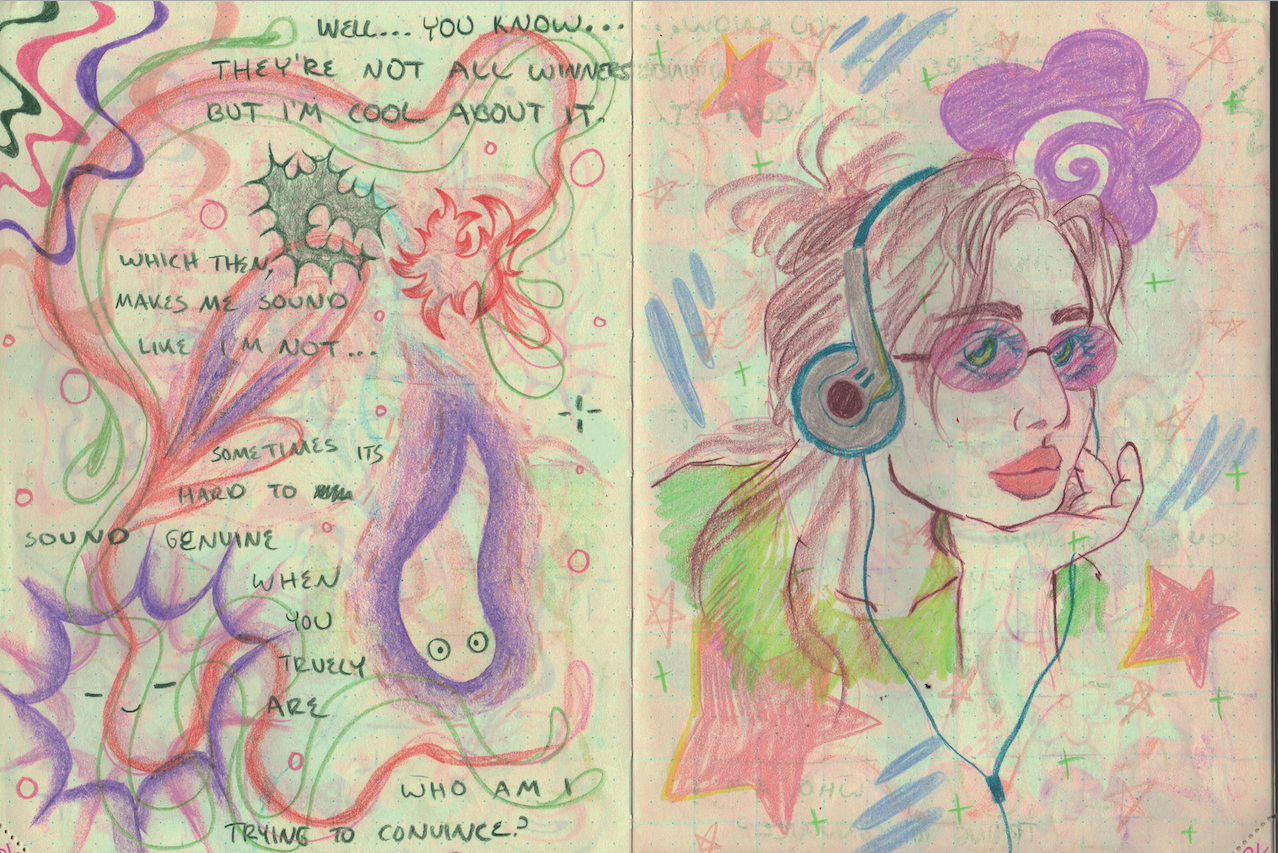 WELL... YOU KNOW...
THEY'RE NOT ALL WINNERS
BUT I'M COOL ABOUT IT.
WHICH THEN,
MAKES ME SOUND
LIKE I'M NOT...
SOMETIMES ITS
HARD TO
SOUND GENUINE
WHEN
YOU
TRUELY
ARE
WHO AM I
TRYING TO CONVINCE?